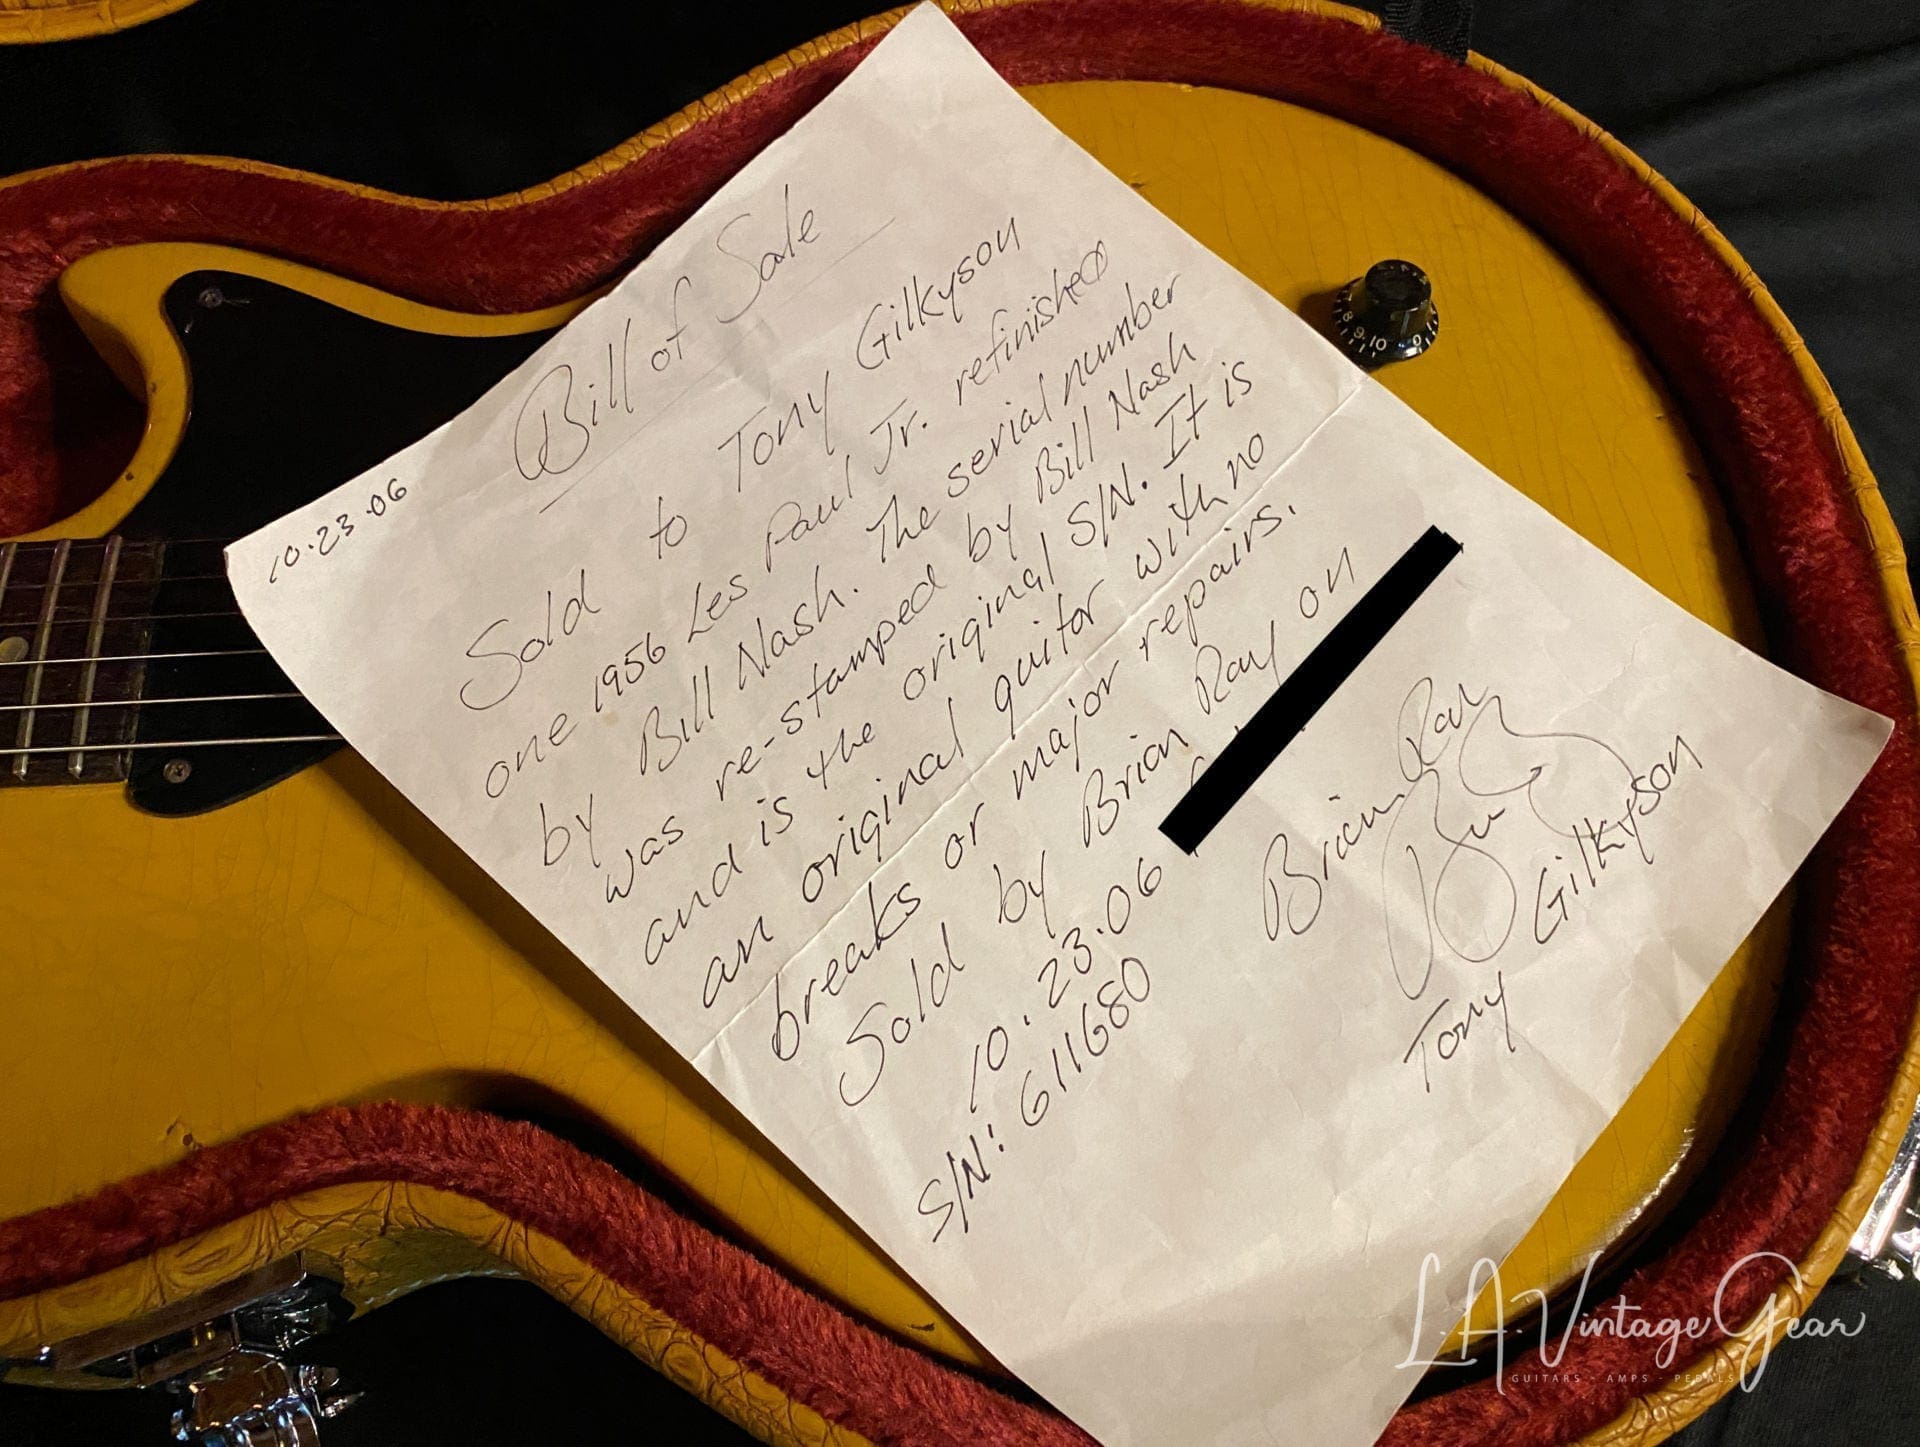 10.23.06
Bill of Sale
Sold to Tony Gilkyson
one 1956 Les Paul Jr. refinished
by Bill Nash. The serial number
was re-stamped by Bill Nash
and is the original S/N. It is
an original guitar with no
breaks or major repairs.
Sold by Brian Ray on
10.23.06
S/N: 611680
Brian Ray
Tony Gilkyson
8 9 10 0
L.A. Vintage Gear
GUITARS - AMPS - PEDALS